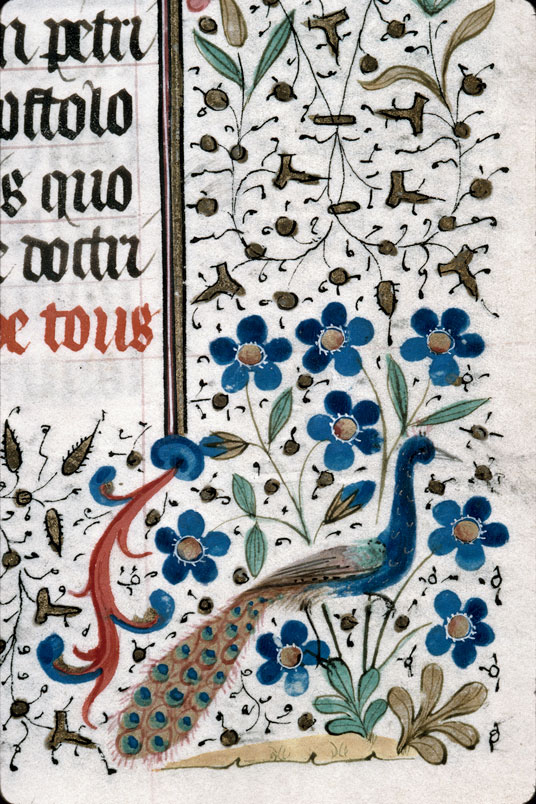 n petri
ostolo
s quo
e doctri
e tous